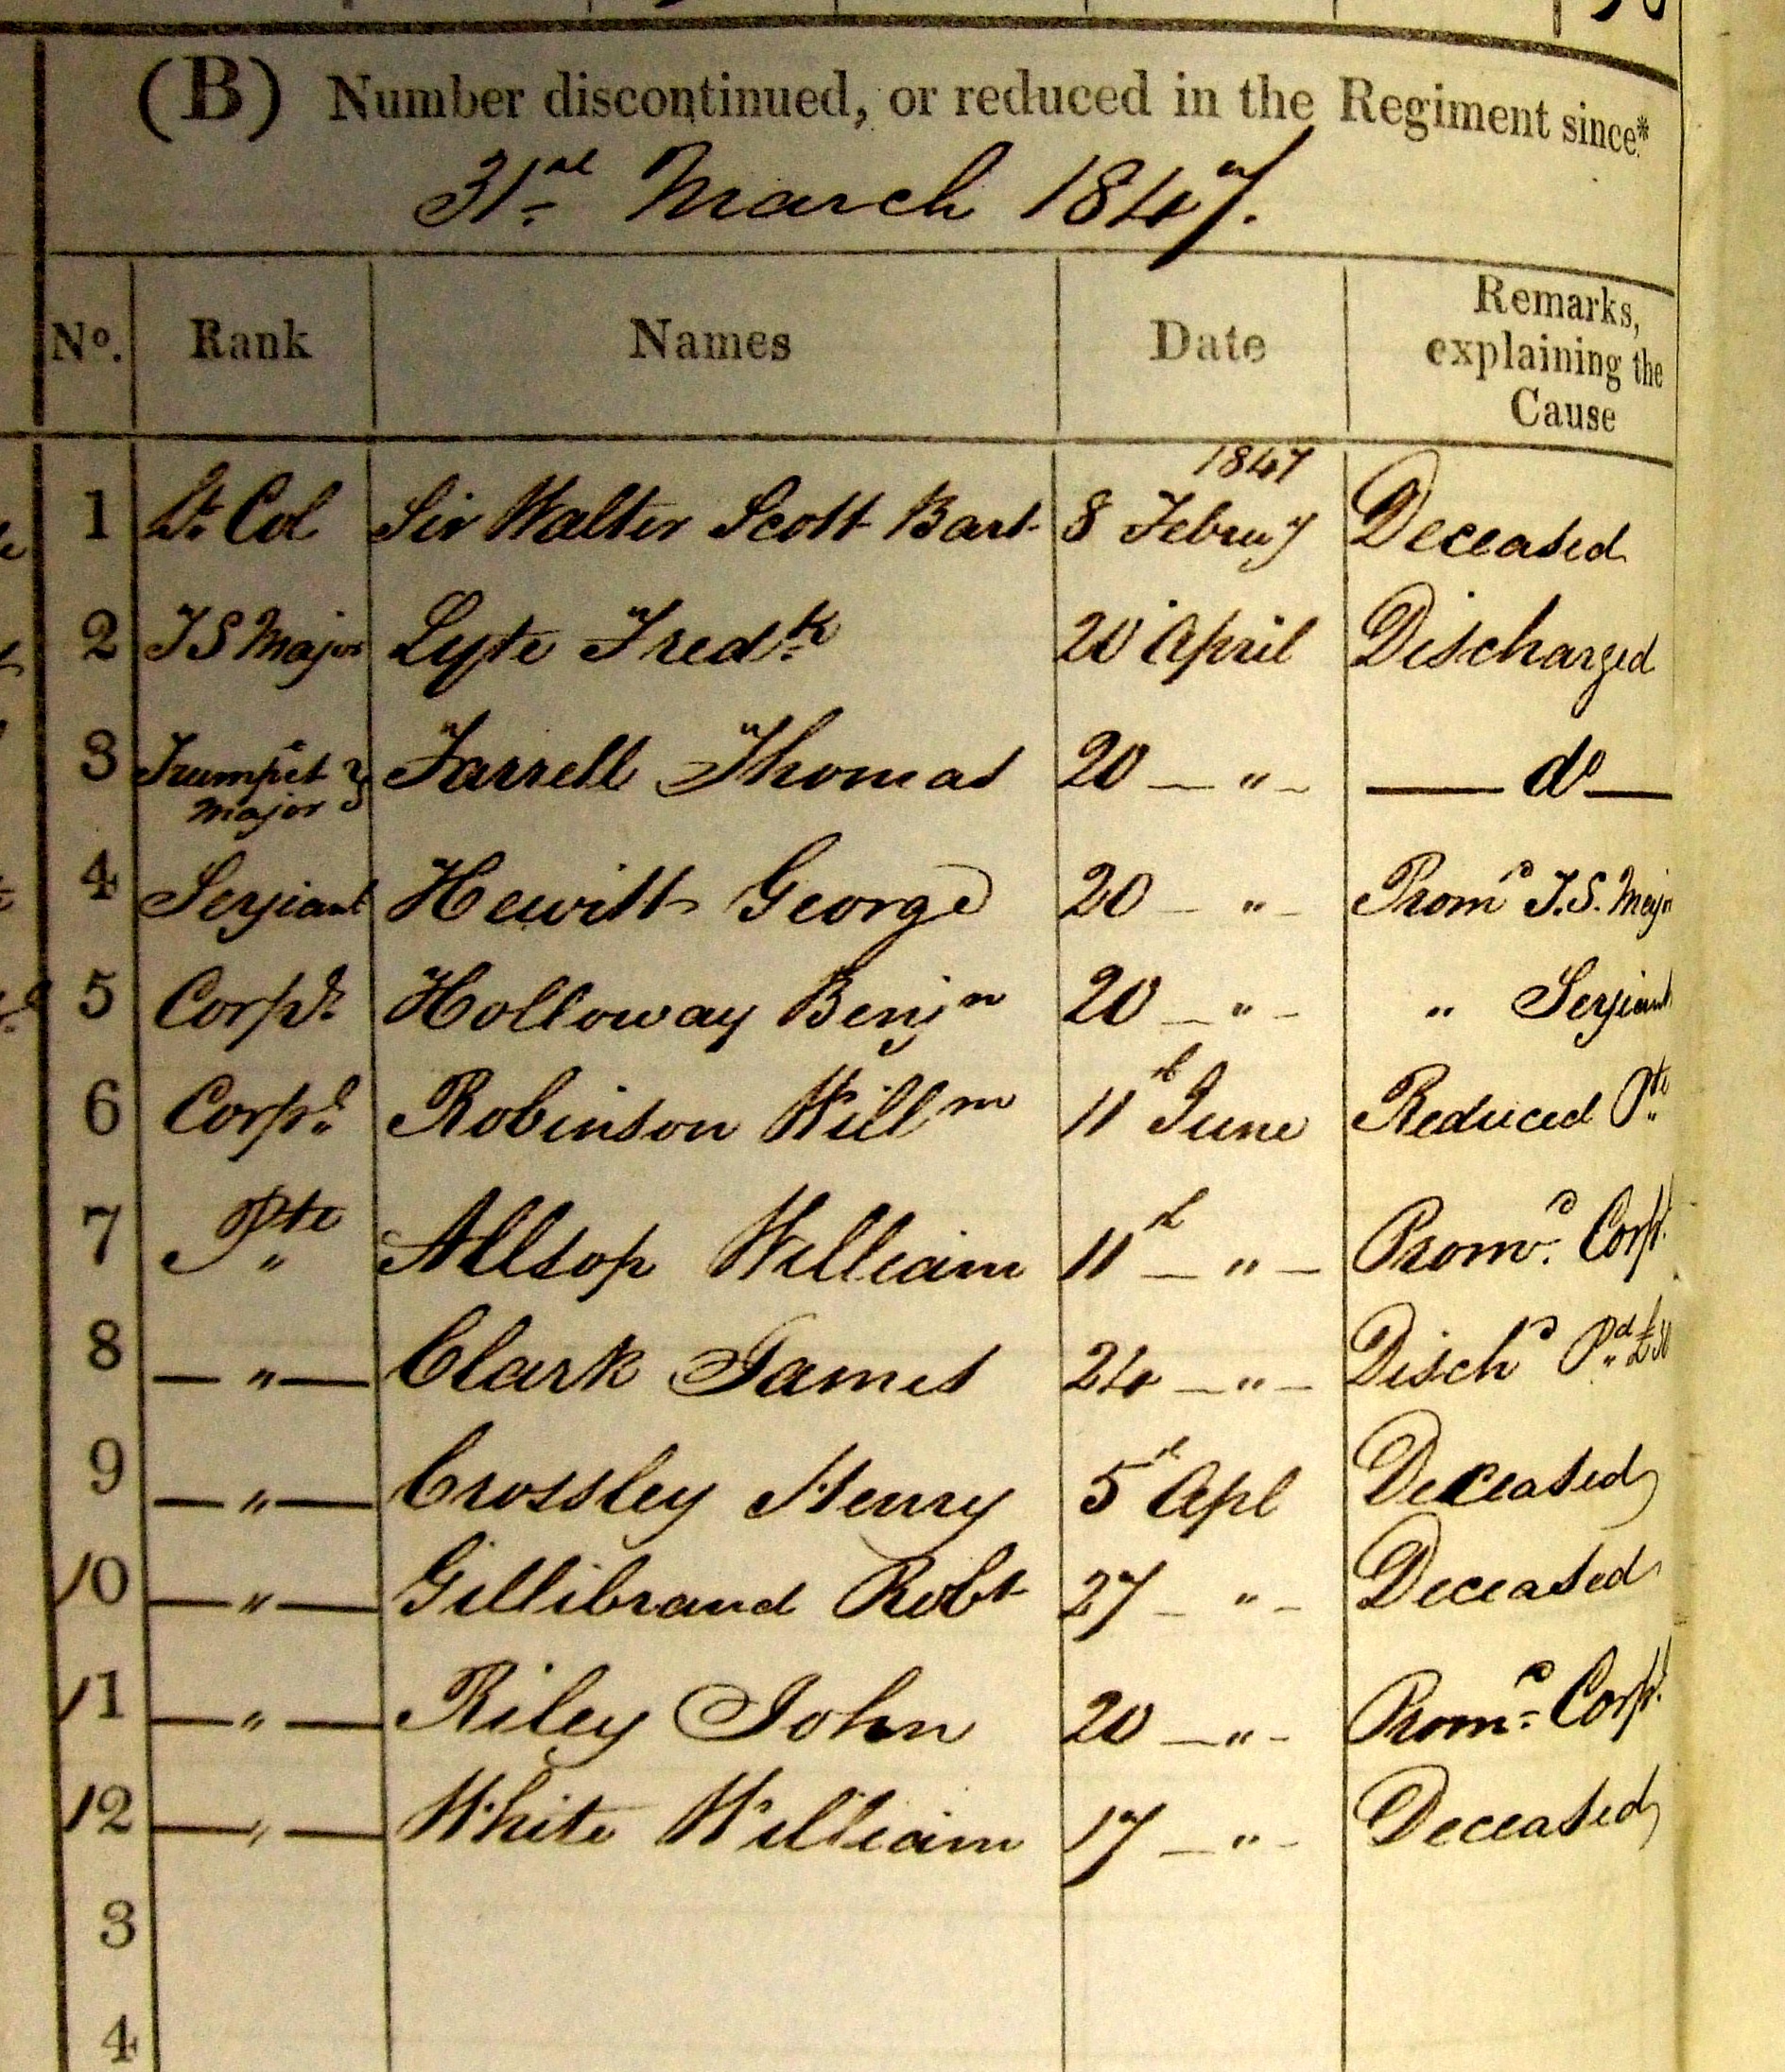 (B) Number discontinued, or reduced in the Regiment since*
31st March 1847.
No. Rank Names Date Remarks, explaining the Cause
1847
1 Lt Col Sir Walter Scott Bart 8 Febru'y Deceased
2 T S Major Lyte Fredk 20 April Discharged
3 Trumpet Major Farrell Thomas 20 — " — — do —
4 Serjeant Hewitt George 20 — " — Promd T.S. Major
5 Corpl Holloway Benjn 20 — " — " Serjeant
6 Corpl Robinson Willm 11th June Reduced Pte
7 Pte Allsop William 11th — " — Promd Corpl
8 — " — Clark James 24 — " — Dischd Pd £30
9 — " — Crossley Henry 5th Apl Deceased
10 — " — Gillibrand Robt 27 — " — Deceased
11 — " — Riley John 20 — " — Promd Corpl
12 — " — White William 17 — " — Deceased
3
4